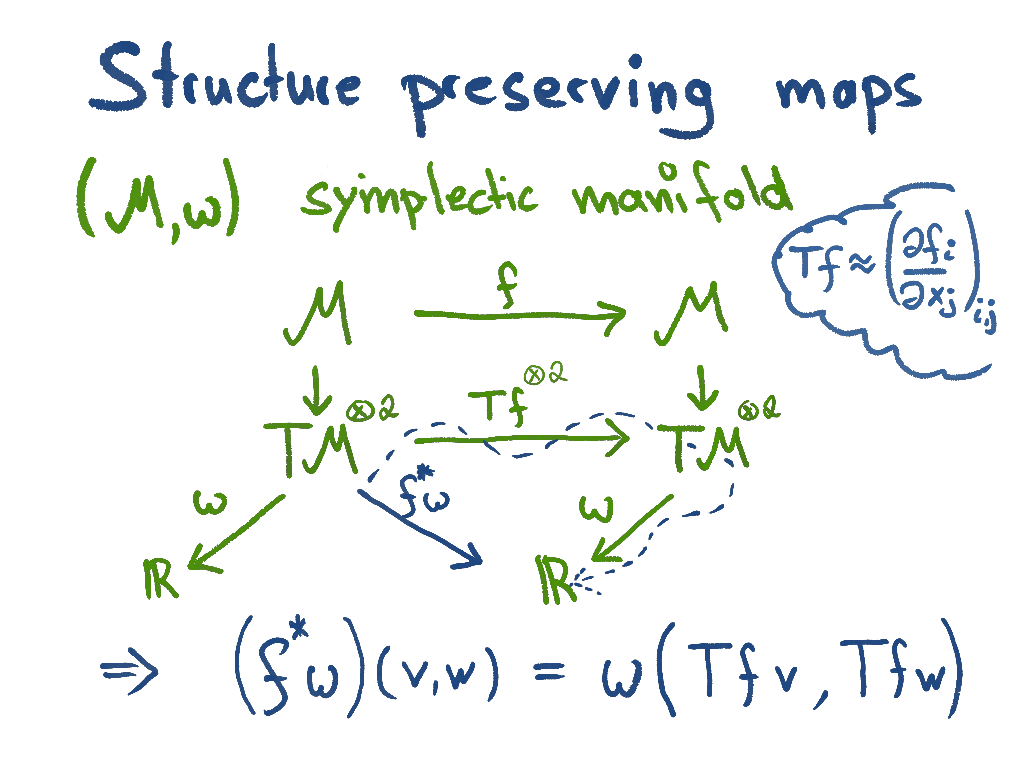 Structure preserving maps
(M, ω) symplectic manifold
Tf ≈ (∂fᵢ/∂xⱼ)ᵢ,ⱼ
f
M M
Tf⊗2
TM⊗2 TM⊗2
ω f*ω ω
ℝ ℝ
⇒ (f*ω)(v,w) = ω(Tf v, Tf w)